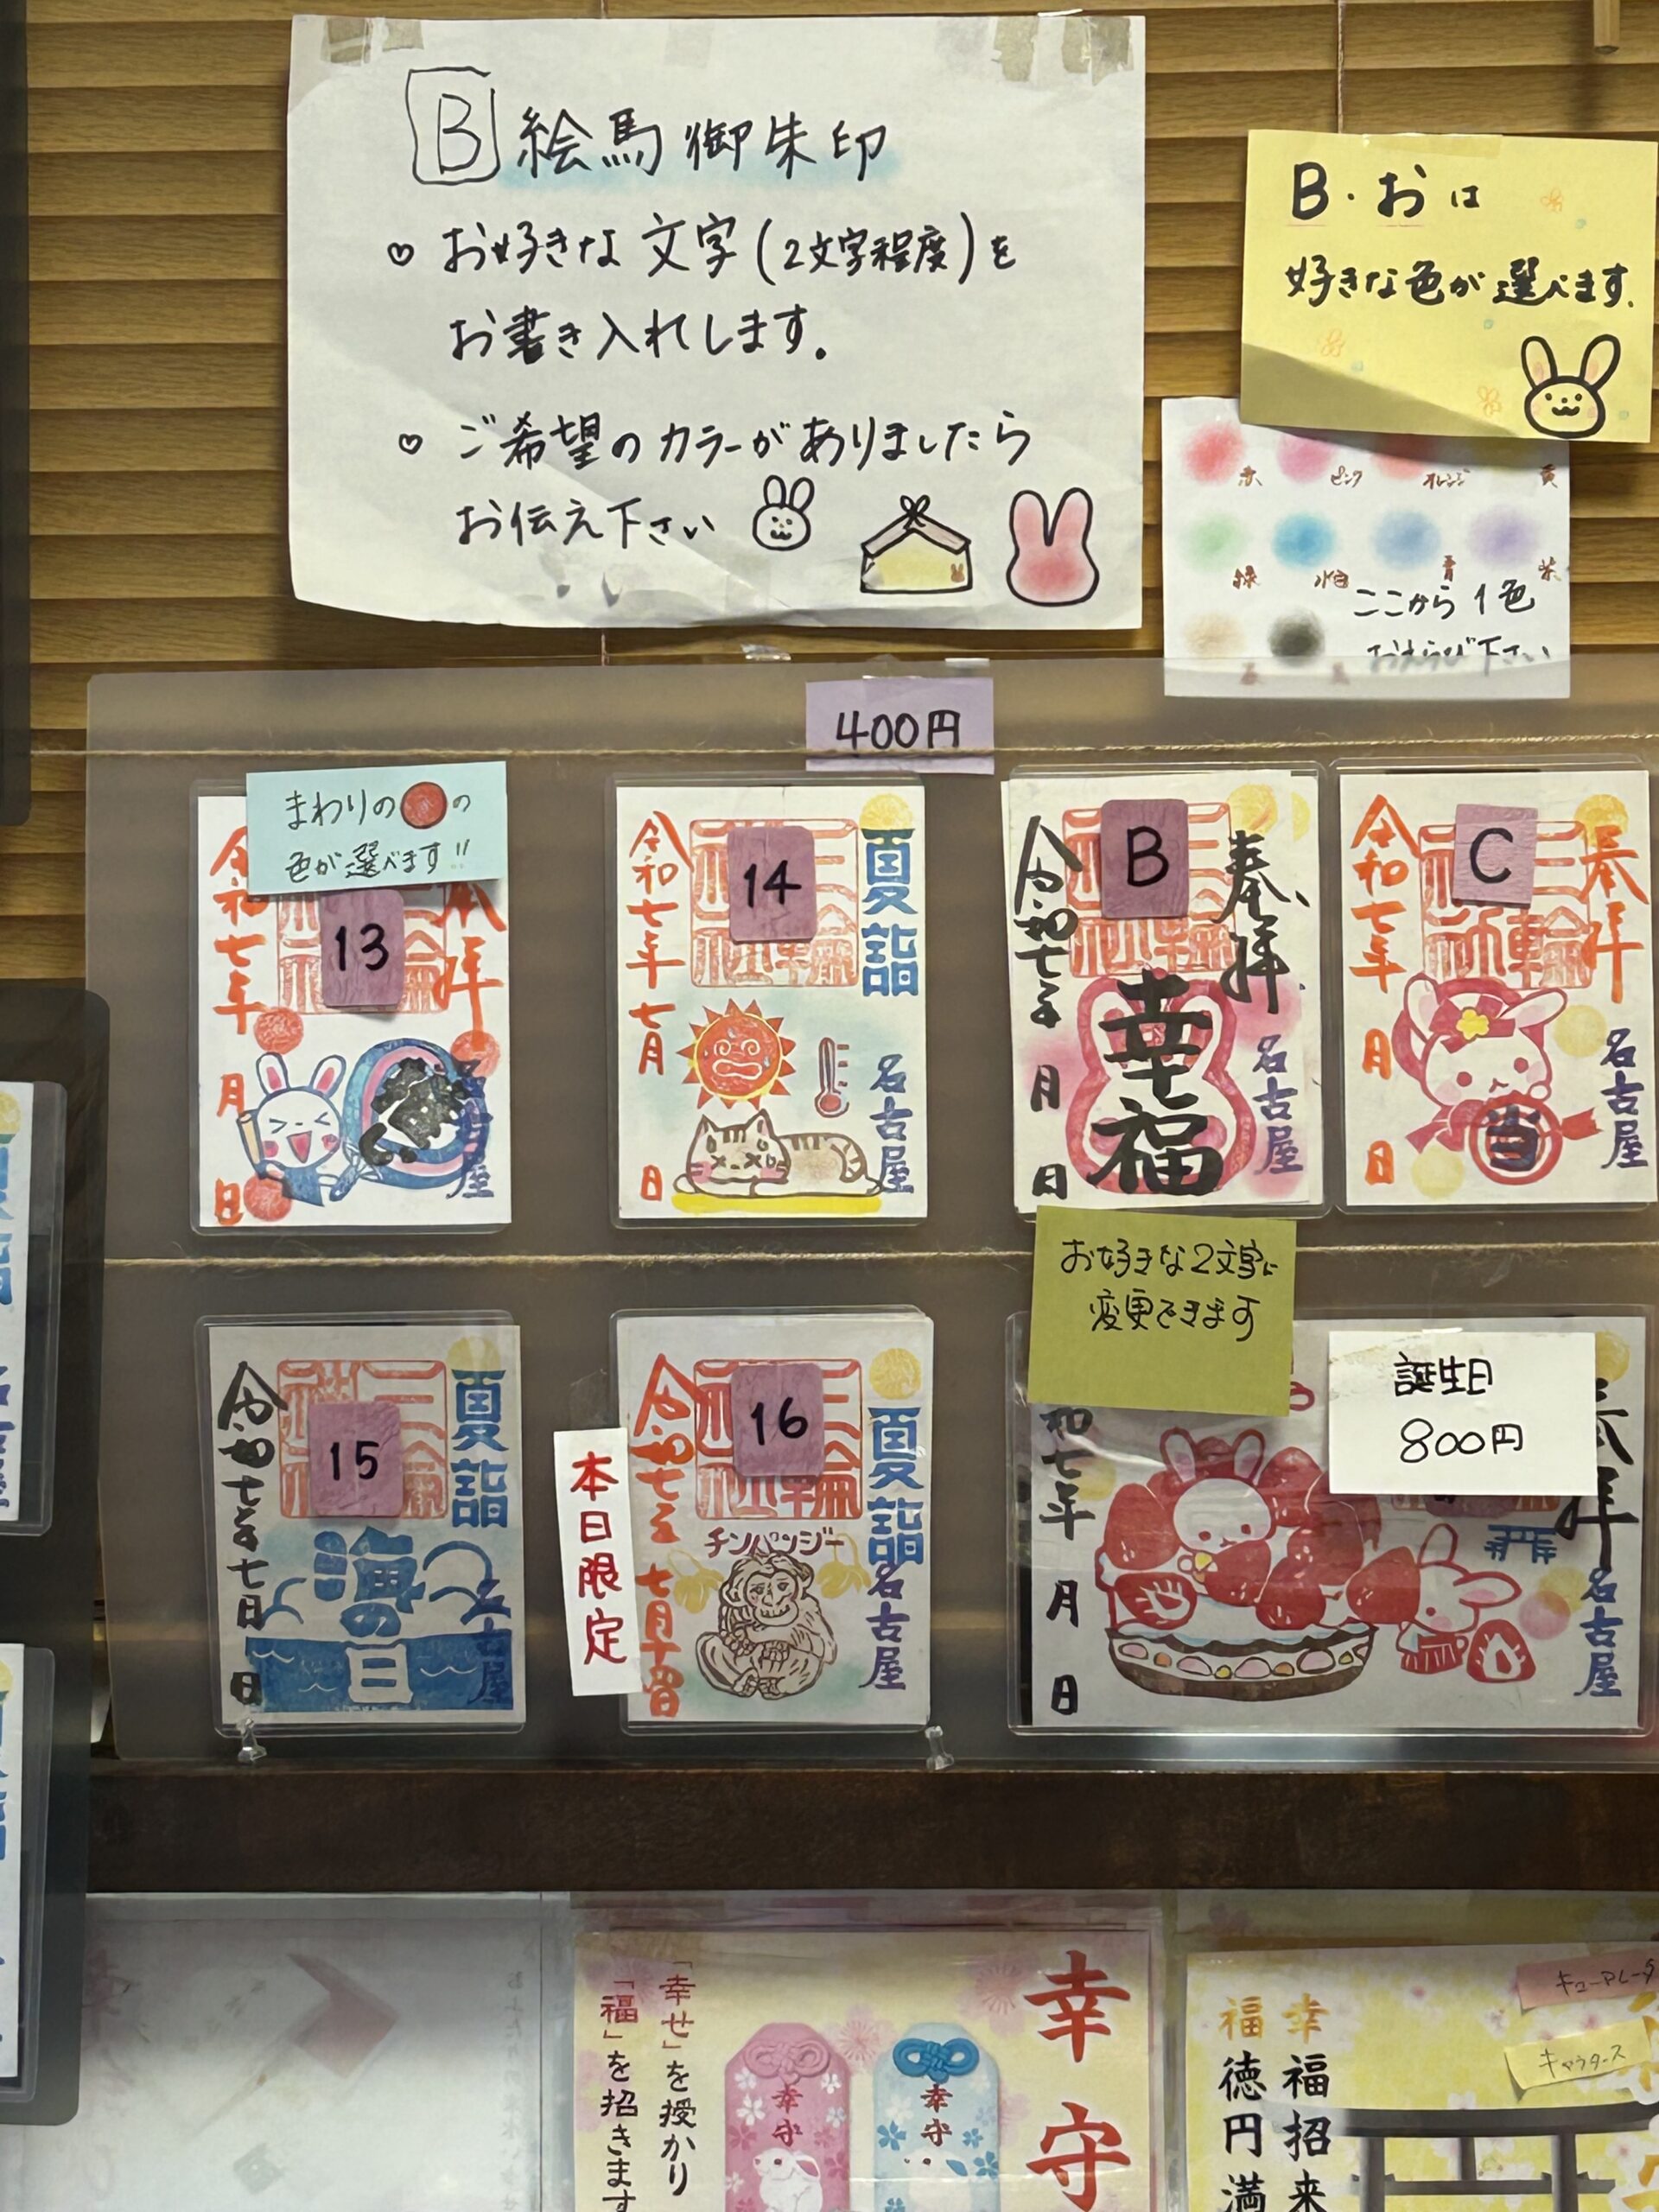 B 絵馬御朱印
♡ お好きな文字(2文字程度)を
お書き入れします。
♡ ご希望のカラーがありましたら
お伝え下さい
B・おは
好きな色が選べます.
赤 ピンク オレンジ 黄
緑 水色 青 紫
ここから1色
おえらび下さい
400円
まわりの の
色が選べます!!
13
令和七年 月 日
拝
14
夏詣
令和七年七月 日
名古屋
B
奉拝
幸福
令和七年 月 日
名古屋
C
奉拝
当
令和七年 月 日
名古屋
お好きな2文字に
変更できます
15
夏詣
海の日
令和七年七月 日
16
夏詣
チンパンジー
名古屋
本日限定
誕生日
800円
奉拝
和七年 月 日
名古屋
幸守
「幸せ」を授かり
「福」を招きます
幸守
幸守
幸福招来
福徳円満
キャラクタース